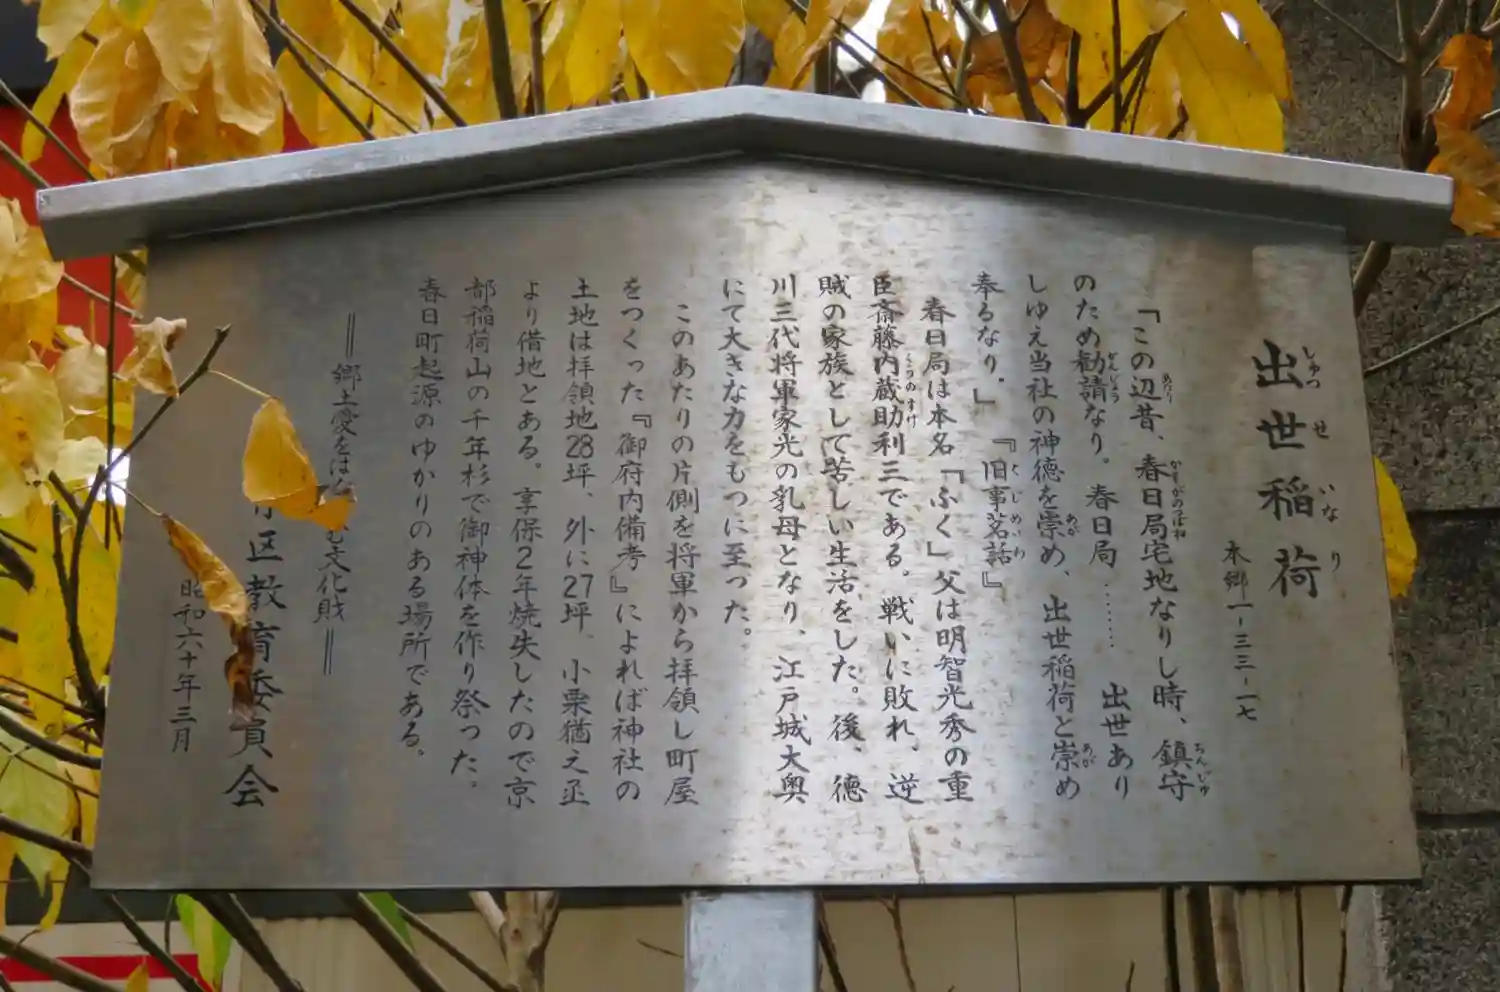 出世稲荷
しゅっせいなり
本郷一-三三-一七
「この辺昔、春日局宅地なりし時、鎮守
のため勧請なり。春日局………出世あり
しゆえ当社の神徳を崇め、出世稲荷と崇め
奉るなり.」『旧事茗話』
春日局は本名「ふく」父は明智光秀の重
臣斎藤内蔵助利三である。戦いに敗れ、逆
賊の家族として苦しい生活をした。後、徳
川三代将軍家光の乳母となり、江戸城大奥
にて大きな力をもつに至った。
このあたりの片側を将軍から拝領し町屋
をつくった『御府内備考』によれば神社の
土地は拝領地28坪、外に27坪、小栗猶之丞
より借地とある。享保2年焼失したので京
都稲荷山の千年杉で御神体を作り祭った.
春日町起源のゆかりのある場所である。
═郷土愛をは む文化財═
区教育委員会
昭和六十年三月